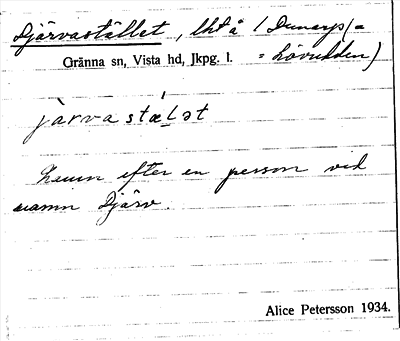 Djärvastället, lht å (Dunarp(=
Gränna sn, Vista hd, Jkpg. l. = Lövudden)
jàrvastæLət
Hemm efter en person vid
namn Djärv.
Alice Petersson 1934.